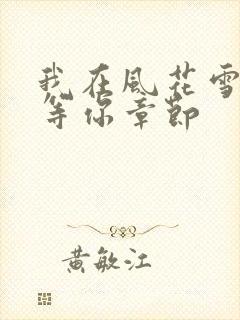 我在風花雪
等你章節
黃敏江